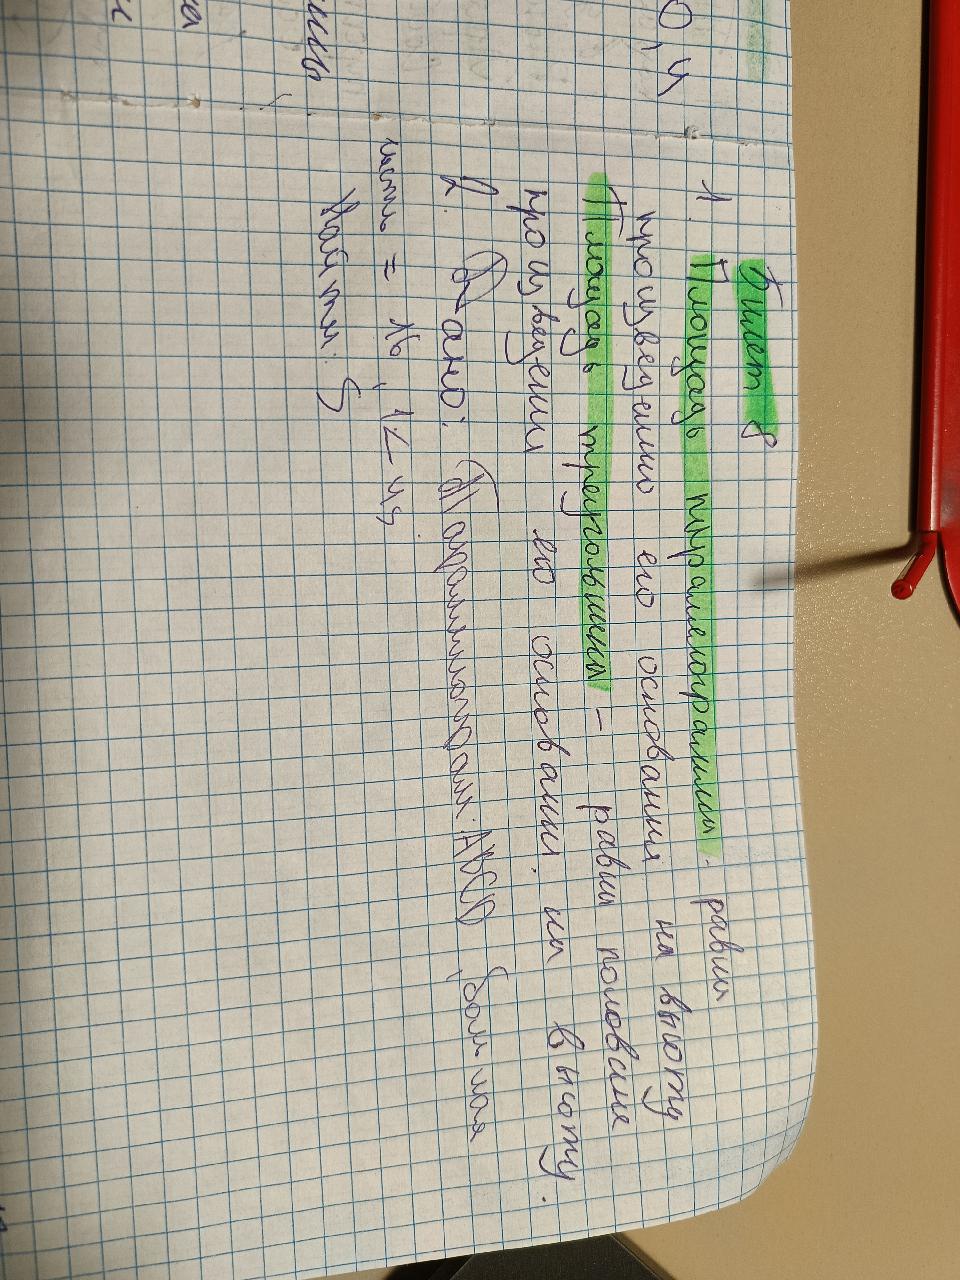 Билет 8
1. Площадь параллелограмма равна
произведению его основания на высоту
Площадь треугольника – равна половине
произведения его основания на высоту.
2. Дано: Параллелограмм ABCD, большая
= 16,
Найти: S
0,4